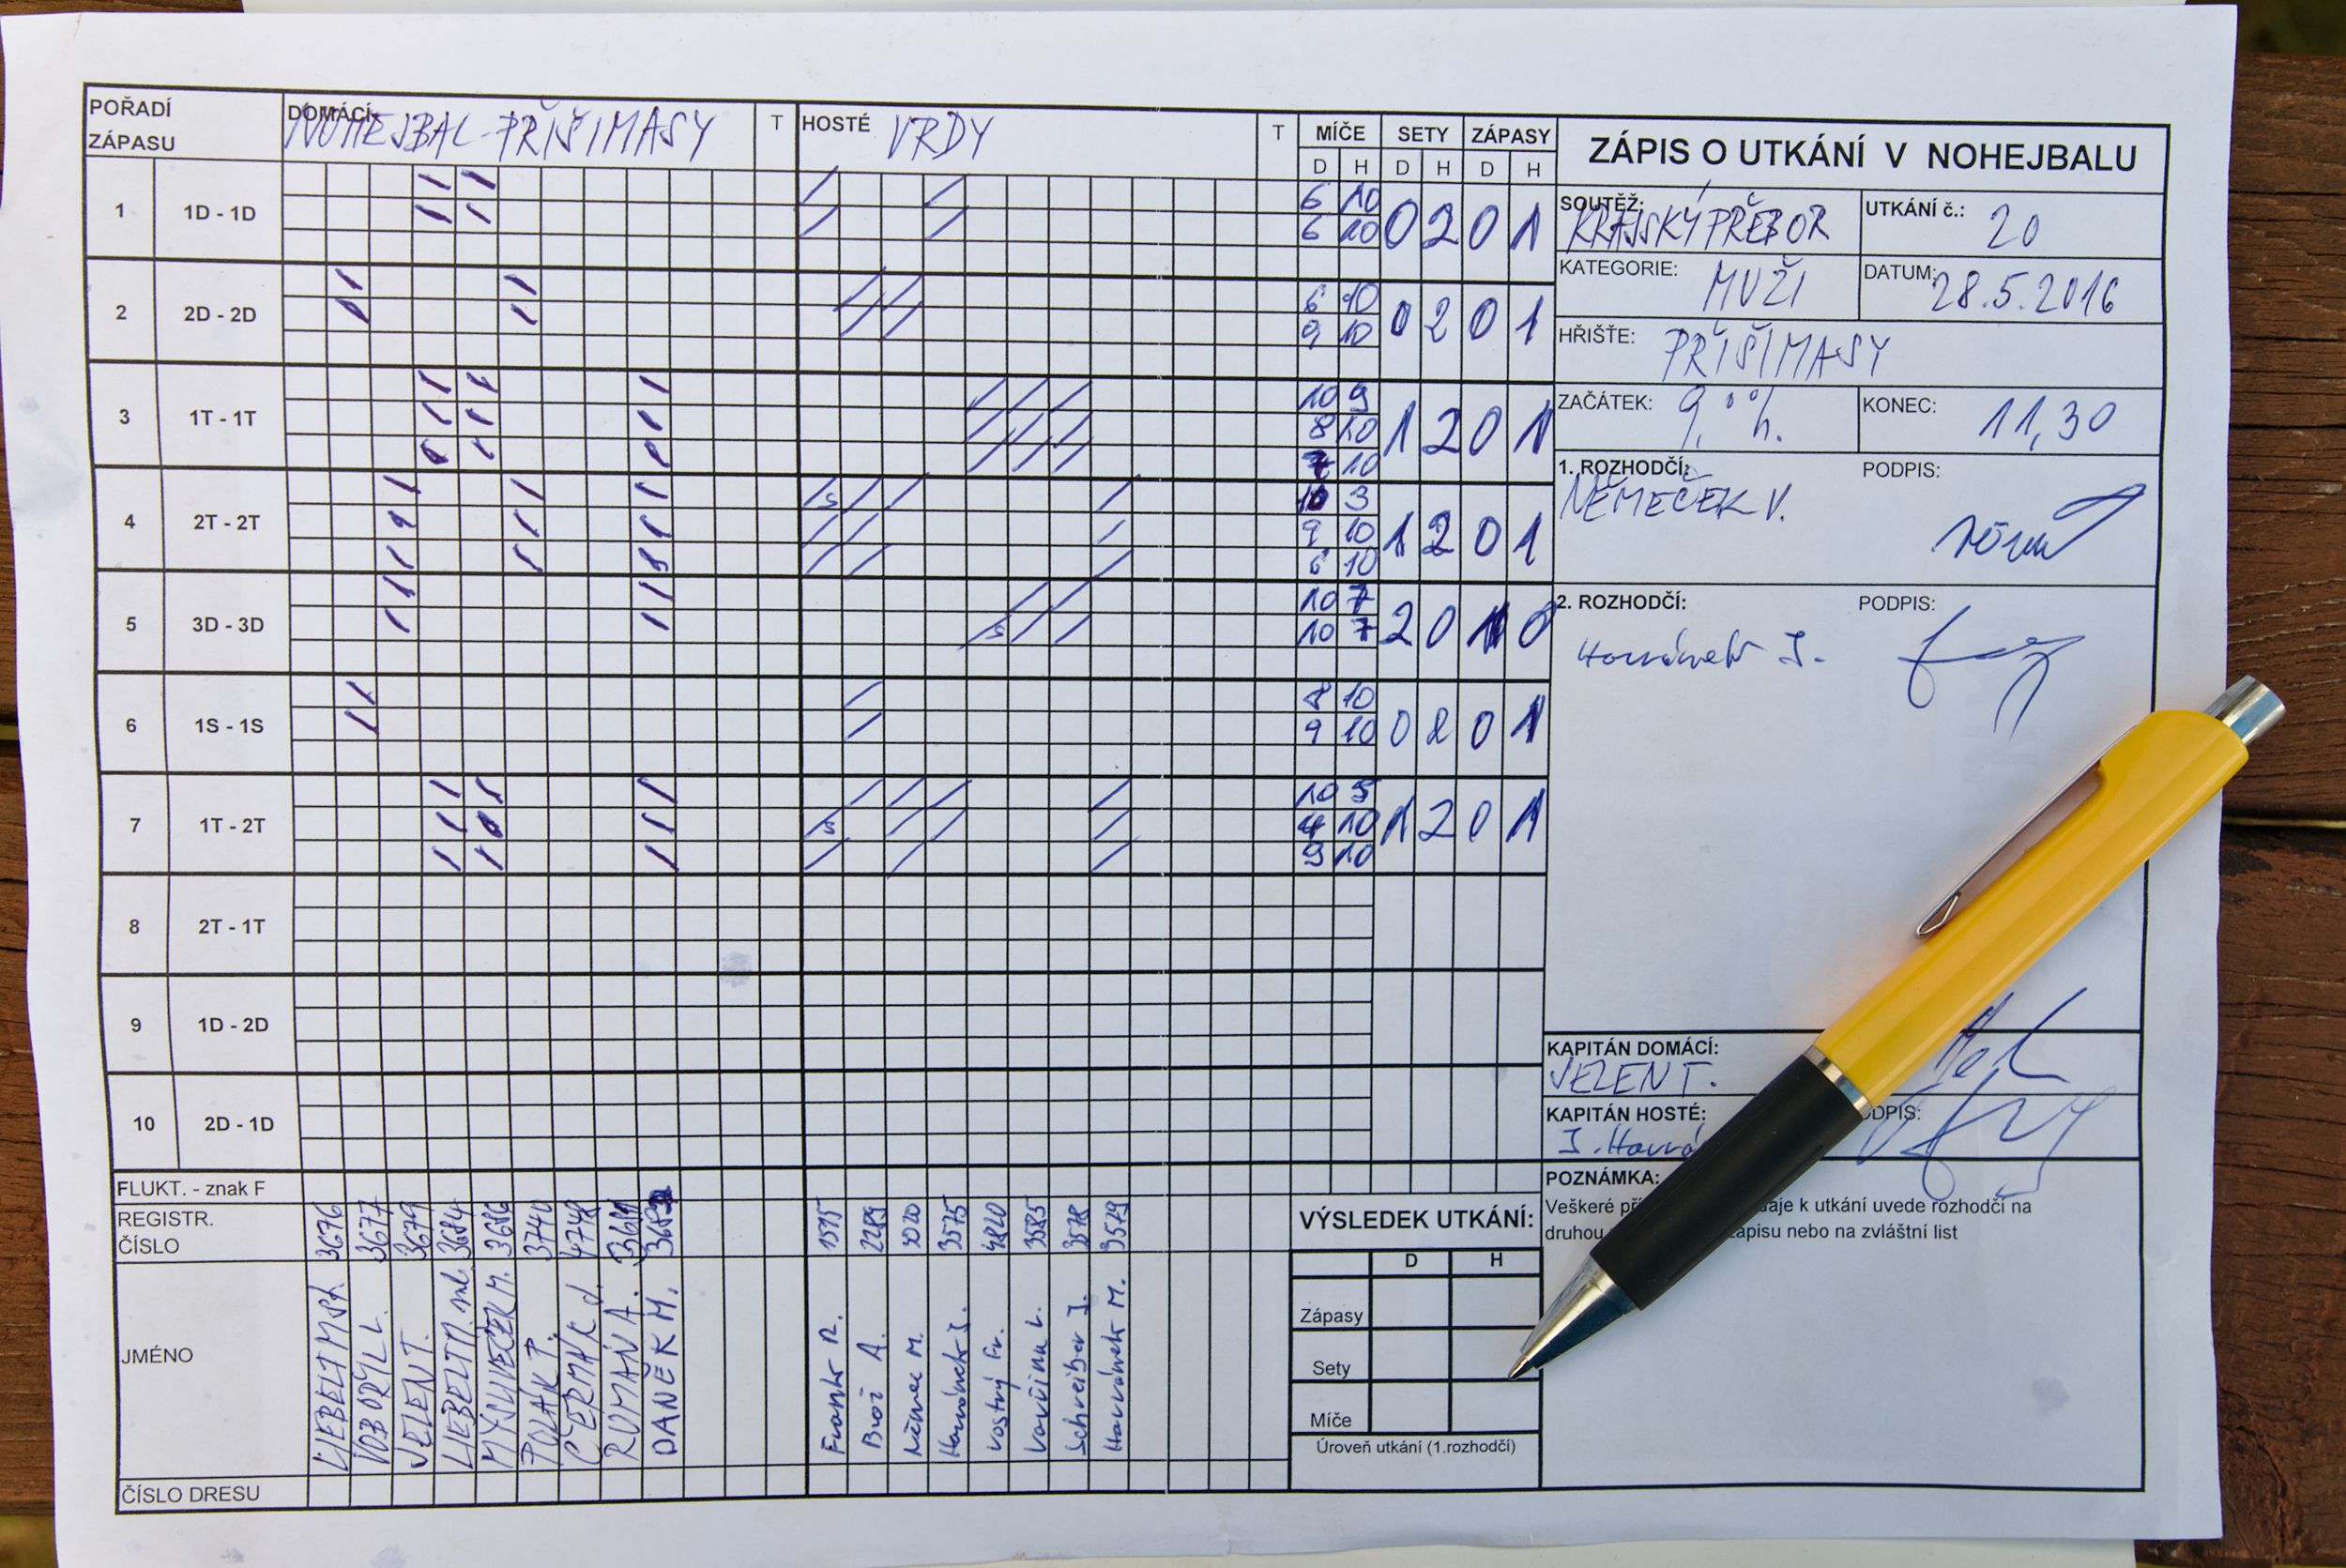 POŘADÍ ZÁPASU
DOMÁCÍ: NOHEJBAL-PŘIŠIMASY
T
HOSTÉ VRDY
T
MÍČE SETY ZÁPASY
D H D H D H
ZÁPIS O UTKÁNÍ V NOHEJBALU
SOUTĚŽ: KRAJSKÝ PŘEBOR
UTKÁNÍ č.: 20
KATEGORIE: MUŽI
DATUM: 28.5.2016
HŘIŠTĚ: PŘIŠIMASY
ZAČÁTEK: 9,°° h.
KONEC: 11,30
1. ROZHODČÍ: NĚMEČEK V.
PODPIS:
2. ROZHODČÍ:
PODPIS:
1 1D - 1D
6 10
6 10
0 2 0 1
2 2D - 2D
6 10
9 10
0 2 0 1
3 1T - 1T
10 9
8 10
7 10
1 2 0 1
4 2T - 2T
S
10 3
9 10
6 10
1 2 0 1
5 3D - 3D
S
10 7
10 7
2 0 1 0
6 1S - 1S
8 10
9 10
0 2 0 1
7 1T - 2T
S
10 5
4 10
9 10
1 2 0 1
8 2T - 1T
9 1D - 2D
10 2D - 1D
KAPITÁN DOMÁCÍ:
JELEN T.
KAPITÁN HOSTÉ:
DPIS:
POZNÁMKA:
Veškeré př aje k utkání uvede rozhodčí na
druhou zápisu nebo na zvláštní list
FLUKT. - znak F
REGISTR. ČÍSLO
3676 3677 3679 3684 3686 3740 4748
1575 2289 3575 4820 3585 3578 3579
JMÉNO
LIEBELT M st.
VOBORÝL L.
JELEN T.
LIEBELT M. ml.
MYSLIVEČEK M.
POLÁK T.
ČERMÁK J.
ROMAN A.
DANĚK M.
Frank R.
Brož A.
Němec M.
Vostrý Fr.
Vavřina L.
Schreiber J.
Havránek M.
ČÍSLO DRESU
VÝSLEDEK UTKÁNÍ:
D H
Zápasy
Sety
Míče
Úroveň utkání (1.rozhodčí)